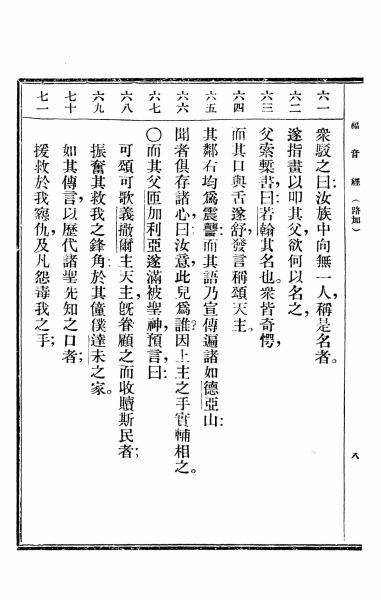 福音經（路加）
八
六一 衆駁之曰：汝族中向無一人，稱是名者。
六二 遂指畫以叩其父，欲何以名之，
六三 父索槧書曰：若翰其名也。衆皆奇愕，
六四 而其口與舌遂舒，發言稱頌天主。
六五 其鄰右均爲震讋：而其語乃宣傳遍諸如德亞山：
六六 聞者俱存諸心，曰：汝意此兒爲誰？因上主之手實輔相之。
六七 〇而其父匝加利亞遂滿被聖神，預言曰：
六八 可頌可歌義撒爾主天主，旣眷顧之而收贖斯民者；
六九 振奮其救我之鋒角，於其僮僕達未之家。
七十 如其傳言，以歷代諸聖先知之口者；
七一 援救於我寃仇，及凡怨毒我之手；